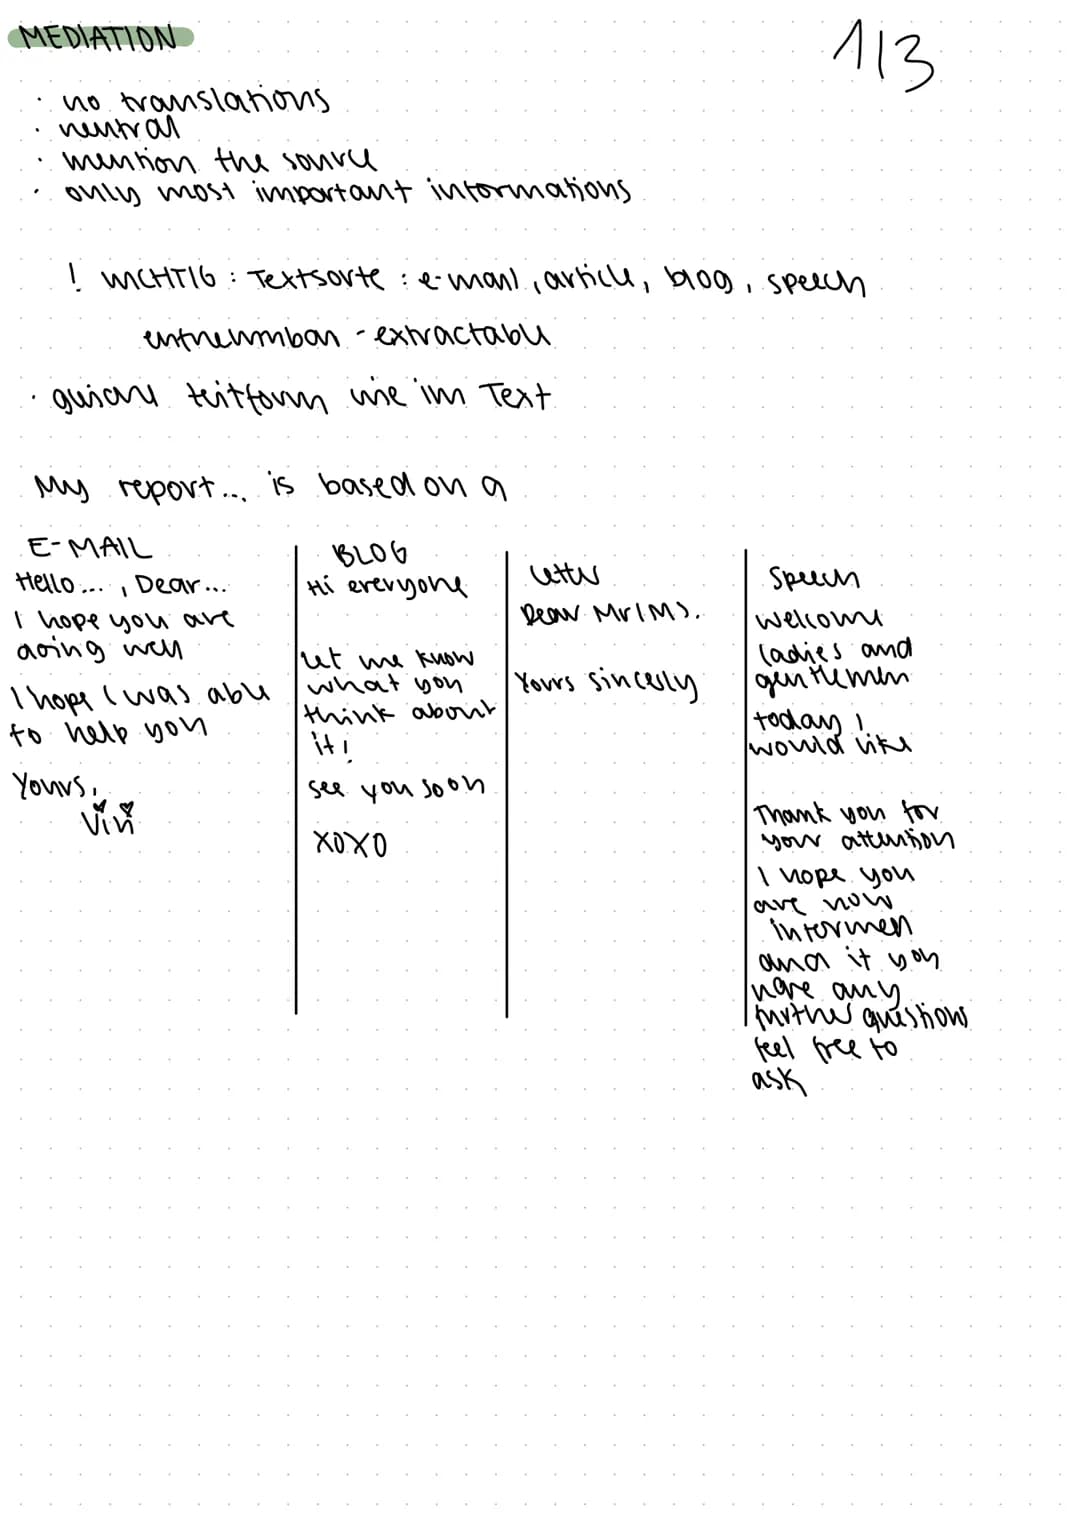 MEDIATION
1/3
· no translations
· neutral
· mention the source
· only most important informations
! WICHTIG : Textsorte : e-mail, article, blog, speech
entnehmbar - extractable
· gleiche Zeitform wie im Text
My report... is based on a
E-MAIL
Hello... , Dear...
I hope you are
doing well
I hope I was able
to help you
Yours,
Vivi
BLOG
Hi everyone
let me know
what you
think about
it!
see you soon
XOXO
Letter
Dear Mr/Ms.
Yours sincerly
Speech
Welcome
ladies and
gentlemen
today I
would like
Thank you for
your attention
I hope you
are now
informed
and if you
have any
further questions
feel free to
ask